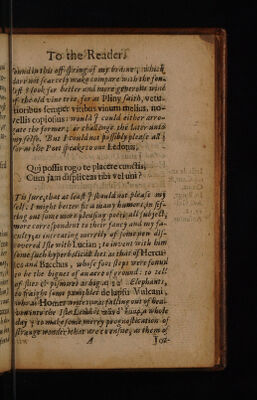 To the Reader.
found in this off-spring of my braine; which
dare not scarcely make compare with the
lest I look for better and more generous wine
of the old vine tree, for as Pliny saith, vetu-
stioribus semper vitibus vinum melius, no-
vellis copiosius: would I could either arro-
gate the former, or challenge the later unto
my selfe. But I could not possibly please all;
for as the Poet speaks to one Ledonus,
Qui possis rogo te placere cunctis,
Cum jam displiceas tibi vel uni?
Tis sure, that at least I should not please my
self. I might better fit a many humors, in set-
ting out some more pleasing poeticall subject,
more correspondent to their fancy and my fa-
culty; as
covered Isle with Lucian; to invent with him
some such hyperbolicall lies as that of Hercu-
les and Bacchus, whose foot steps were found
to be the bignes of an acre of ground: to tell
of flies & pismires as big as 12 Elephants,
to fraight some pamphlet de lapsu Vulcani,
who as Homer falling out of hea-
ven into the Isle a whole
day; to make some merry prognostication of
strange wonders that are to ensue, as them of
A
Jo-